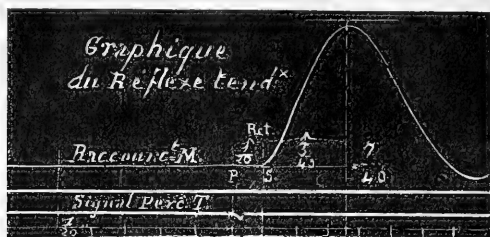 Graphique
du Réflexe tendx
Ret.
Raccourct M.
1/20
3
7/40
P S
Signal Perc. T.